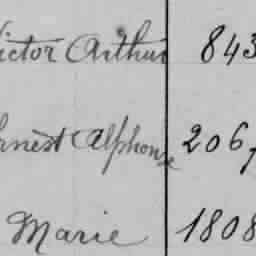 Victor Arthur 843
Ernest Alphonse 2067
Marie 1808